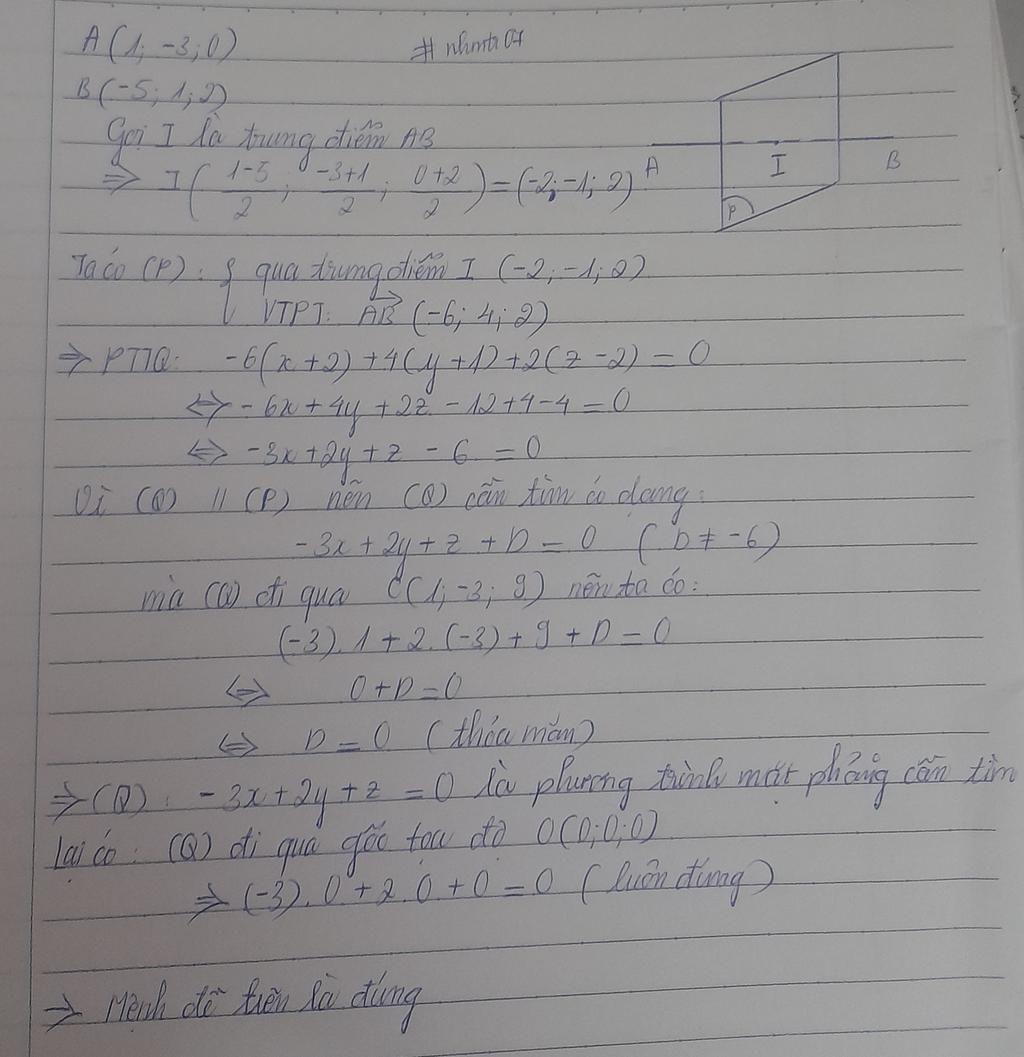 A(1; -3; 0)
# nhmt 07
B(-5; 1; 2)
Gọi I là trung điểm AB
⇒ I( (1-5)/2 ; (-3+1)/2 ; (0+2)/2 ) = (-2; -1; 2)
A I B
P
Ta có (P): { qua trung điểm I (-2; -1; 2)
VTPT: AB→ (-6; 4; 2)
⇒ PTTQ: -6(x+2) + 4(y+1) + 2(z-2) = 0
⇔ -6x + 4y + 2z - 12 + 4 - 4 = 0
⇔ -3x + 2y + z - 6 = 0
Vì (Q) // (P) nên (Q) cần tìm có dạng:
-3x + 2y + z + D = 0 (D ≠ -6)
mà (Q) đi qua C(1; -3; 9) nên ta có:
(-3).1 + 2.(-3) + 9 + D = 0
⇔ 0 + D = 0
⇔ D = 0 (thỏa mãn)
⇒ (Q): -3x + 2y + z = 0 là phương trình mặt phẳng cần tìm
Lại có: (Q) đi qua gốc tọa độ O(0; 0; 0)
⇒ (-3).0 + 2.0 + 0 = 0 (luôn đúng)
⇒ Mệnh đề trên là đúng